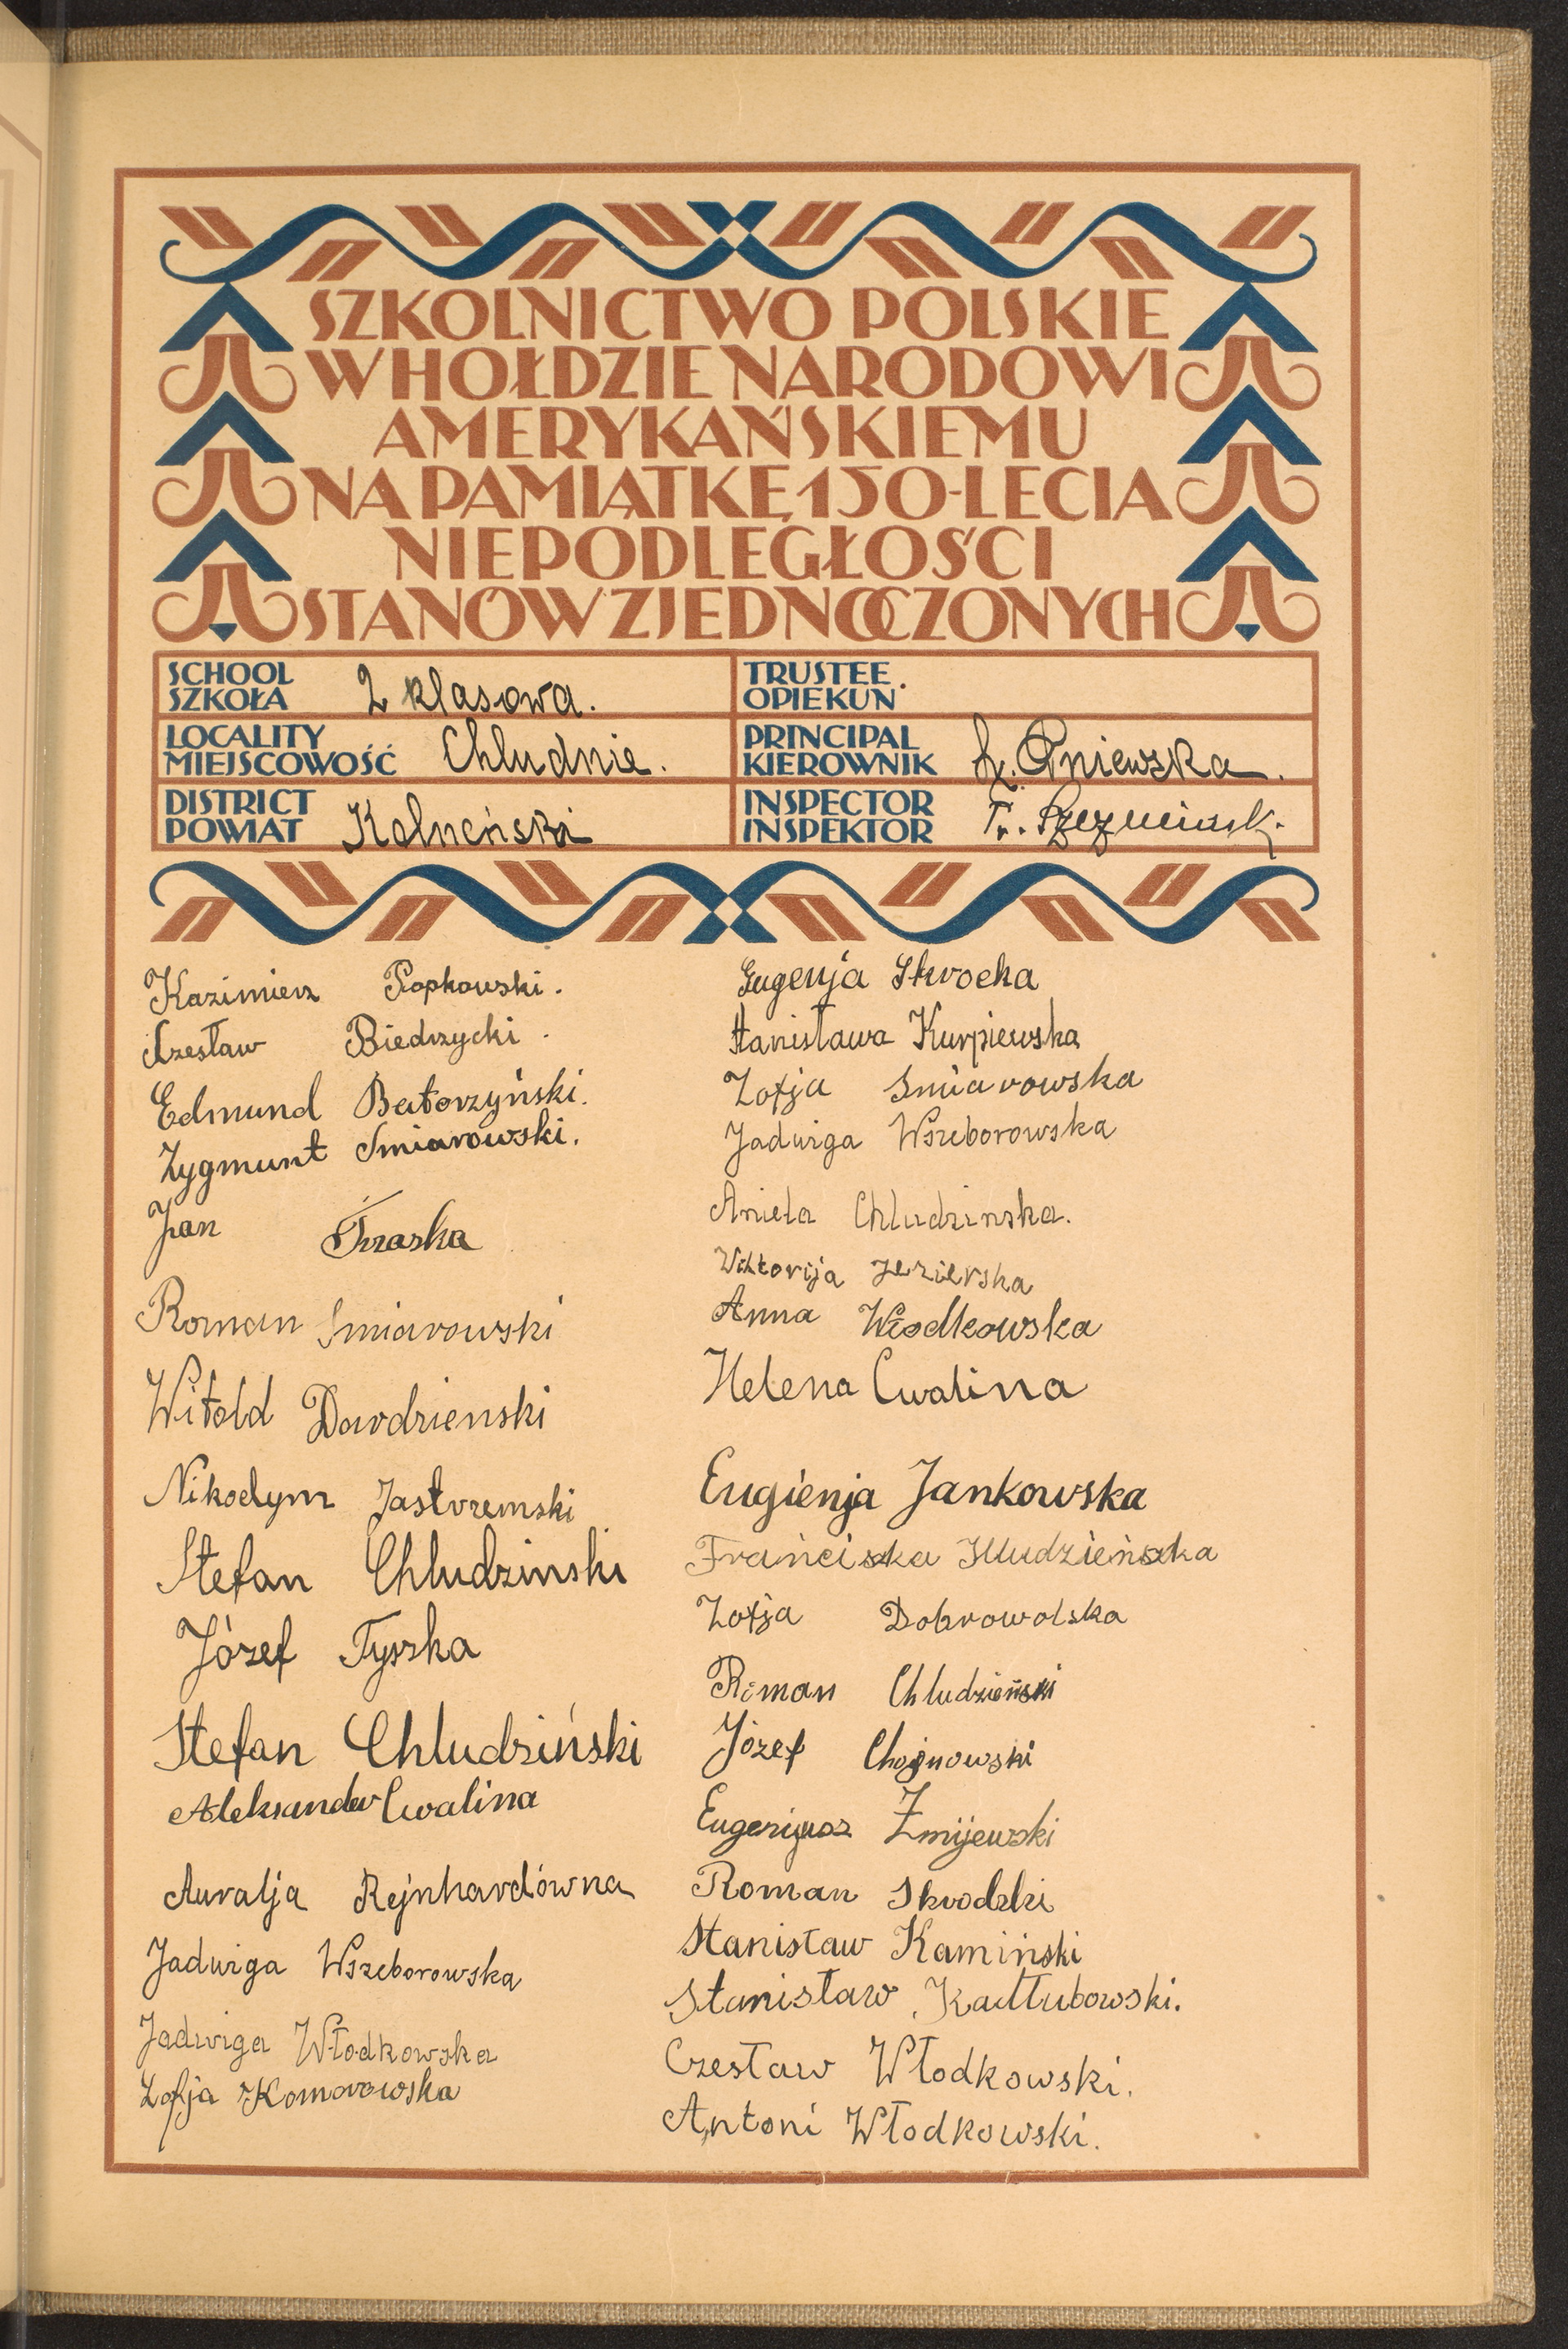 SZKOLNICTWO POLSKIE
W HOŁDZIE NARODOWI
AMERYKAŃSKIEMU
NA PAMIĄTKĘ 150-LECIA
NIEPODLEGŁOŚCI
STANÓW ZJEDNOCZONYCH
SCHOOL
SZKOŁA 2 klasowa.
TRUSTEE
OPIEKUN
LOCALITY
MIEJSCOWOŚĆ Chludnie.
PRINCIPAL
KIEROWNIK Gniewska.
DISTRICT
POWIAT Kolneński
INSPECTOR
INSPEKTOR
Kazimierz Popkowski.
Czesław Biedrzycki.
Edmund Batorzyński.
Zygmunt Smiarowski.
Jan Traska
Roman Smiarowski
Witold Dardzienski
Nikodym Jastrzemski
Stefan Chludzinski
Józef Tyszka
Stefan Chludziński
Aleksander Cwalina
Auralja Rejnhardówna
Jadwiga Wszeborowska
Jadwiga Włodkowska
Zofja Komorowska
Eugenja Skrocka
Stanisława Kurpiewska
Zofja Smiarowska
Jadwiga Wszeborowska
Aniela Chludzinska.
Wiktorija Jezierska
Anna Włodkowska
Helena Cwalina
Eugienja Jankowska
Franciszka
Zofja Dobrowolska
Roman Chludzieński
Józef Chojnowski
Eugenjusz Żmijewski
Roman Skrodzki
Stanisław Kamiński
Stanisław Kadłubowski.
Czesław Włodkowski.
Antoni Włodkowski.